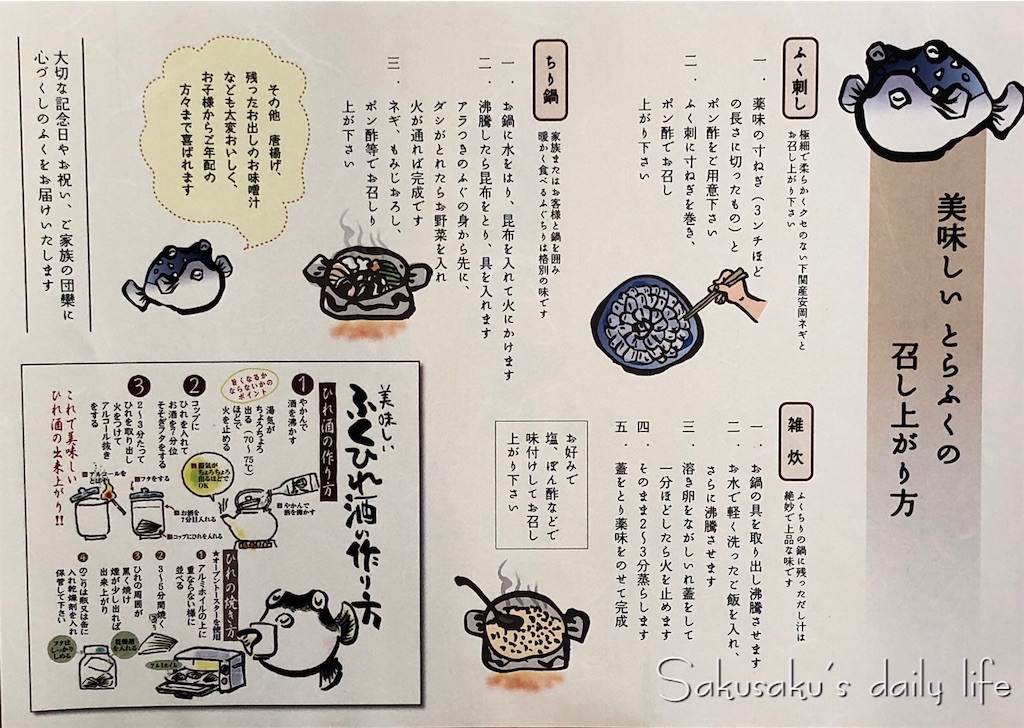 美味しいとらふくの
召し上がり方
ふく刺し
極細で柔らかくクセのない下関産安岡ネギと
お召し上がり下さい
一．薬味の寸ねぎ（３ンチほど
の長さに切ったもの）と
ポン酢をご用意下さい
二．ふく刺に寸ねぎを巻き、
ポン酢でお召し
上がり下さい
ちり鍋
家族またはお客様と鍋を囲み
暖かく食べるふぐちりは格別の味です
一．お鍋に水をはり、昆布を入れて火にかけます
二．沸騰したら昆布をとり、具を入れます
アラつきのふぐの身から先に、
ダシがとれたらお野菜を入れ
火が通れば完成です
三．ネギ、もみじおろし、
ポン酢等でお召しり
上が下さい
その他　唐揚げ、
残ったお出しのお味噌汁
なども大変おいしく、
お子様からご年配の
方々まで喜ばれます
大切な記念日やお祝い、ご家族の団欒に
心づくしのふくをお届けいたします
雑炊
ふくちりの鍋に残っただし汁は
絶妙で上品な味です
一．お鍋の具を取り出し沸騰させます
二．お水で軽く洗ったご飯を入れ、
さらに沸騰させます
三．溶き卵をながしいれ蓋をして
一分ほどしたら火を止めます
四．そのまま２〜３分蒸らします
五．蓋をとり薬味をのせて完成
お好みで
塩、ぽん酢などで
味付けしてお召し
上がり下さい
美味しい
ふくひれ酒の作り方
ひれ酒の作り方
1 やかんで
酒を沸かす
湯気が
ちょろちょろ
出る（70〜75℃）
ほどで
火を止める
旨くなるか
ならないかの
ポイント
2 コップに
ひれを入れて
お酒を7分位
そそぎフタをする
3 2〜3分たって
ひれを取り出し
火をつけて
アルコール抜き
をする
これで美味しい
ひれ酒の出来上がり!!
湯気が
ちょろちょろ
出るほどで
OK
やかんで
酒を沸かす
アルコールを
とばす
フタをする
お酒を
7分目入れる
コップにひれを入れる
ひれの焼き方
★オーブントースターを使用
1 アルミホイルの上に
重ならない様に
並べる
2 3〜5分間焼く
3 ひれの周囲が
黒く焼け
煙が少し出れば
出来上がり
4 のこりは瓶又は缶に
入れ乾燥剤を入れ
保管して下さい
アルミホイル
乾燥剤
を入れる
フタは
しっかり
しめる
Sakusaku's daily life